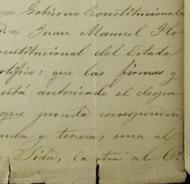 = Gobierno Constitucional
D.= Juan Manuel Flo
onstitucional del Estado
que las firmas y
está autorizado el despa
que precede corresponden
nda y tercera, una al
la otra al C.